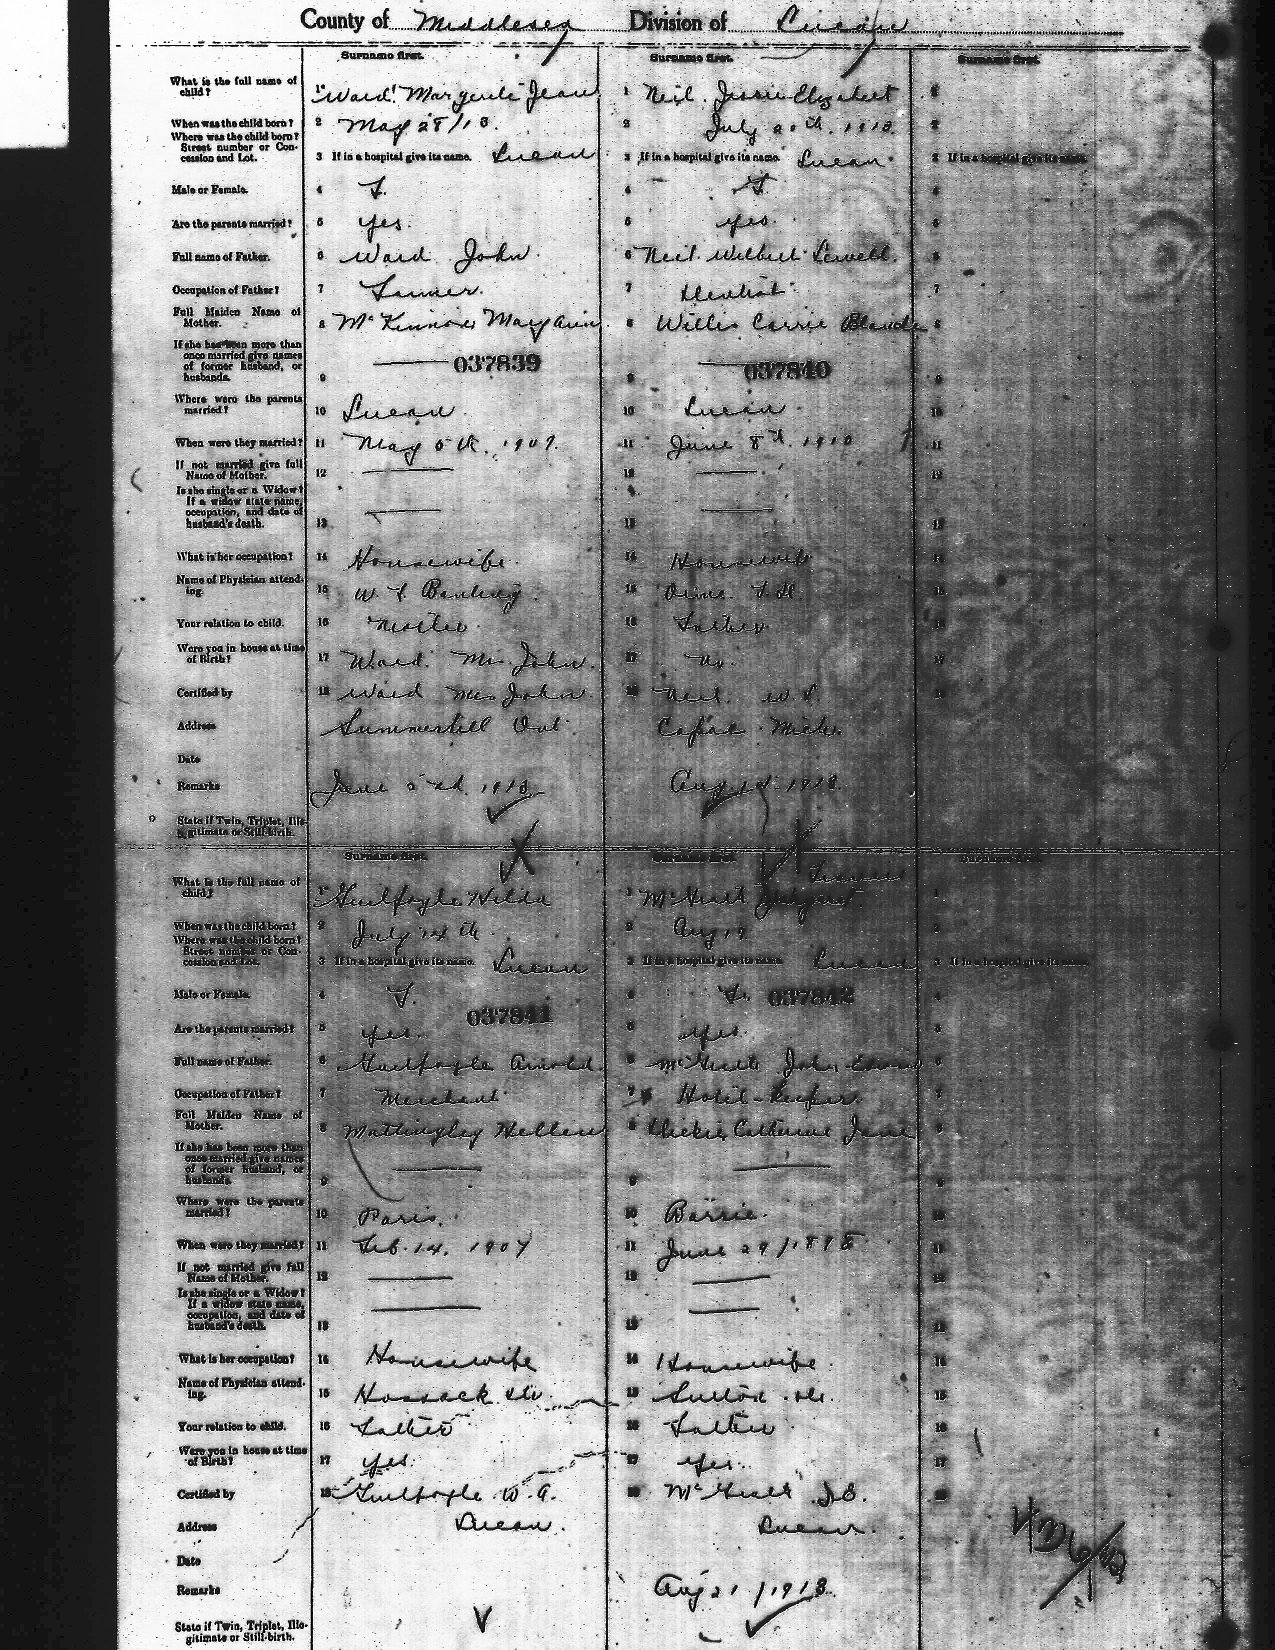 County of Middlesex Division of Lucan
Surname first. Surname first. Surname first.
What is the full name of child? 1 Ward Marguerite Jean 1 Neil Jessie Elizabeth
When was the child born? 2 May 28/13. 2 July 20th, 1913. 2
Where was the child born?
Street number or Concession and Lot. 3 If in a hospital give its name. Lucan 3 If in a hospital give its name. Lucan 3 If in a hospital give its name.
Male or Female. 4 F. 4 F 4
Are the parents married? 5 yes. 5 yes. 5
Full name of Father. 6 Ward John 6 Neil Wilbert Lewell. 6
Occupation of Father? 7 7 Dentist 7
Full Maiden Name of Mother. 8 Mary Ann 8 Willis Carrie Blanche 8
If she has been more than once married give names of former husband, or husbands. 9 037839 9 037840 9
Where were the parents married? 10 Lucan 10 Lucan 10
When were they married? 11 May 5th, 1909. 11 June 8th, 1910 11
If not married give full Name of Mother. 12 12 12
Is she single or a Widow? If a widow state name, occupation, and date of husband's death. 13 13 13
What is her occupation? 14 Housewife. 14 Housewife 14
Name of Physician attending. 15 W F Banting 15 15
Your relation to child. 16 Mother 16 Father 16
Were you in house at time of Birth? 17 Ward Mrs John. 17 No. 17
Certified by 18 Ward Mrs John 18 Neil W L 18
Address Summerhill Ont. Capac Mich.
Date
Remarks June 1913 Aug 1913.
State if Twin, Triplet, Illegitimate or Still-birth.
Surname first. Surname first. Surname first.
What is the full name of child? 1 Guilfoyle Hilda 1 1
When was the child born? 2 July 14th 2 Aug 19 2
Where was the child born?
Street number or Concession and Lot. 3 If in a hospital give its name. Lucan 3 If in a hospital give its name. Lucan 3 If in a hospital give its name.
Male or Female. 4 F. 4 F. 037842 4
Are the parents married? 5 yes. 037841 5 yes. 5
Full name of Father. 6 Guilfoyle Arnold. 6 John 6
Occupation of Father? 7 Merchant 7 Hotel-Keeper. 7
Full Maiden Name of Mother. 8 Mattingley Hellen 8 Catherine Jane 8
If she has been more than once married give names of former husband, or husbands. 9 9 9
Where were the parents married? 10 Paris. 10 Barrie. 10
When were they married? 11 Feb. 14, 1907 11 June 29/1898 11
If not married give full Name of Mother. 12 12 12
Is she single or a Widow? If a widow state name, occupation, and date of husband's death. 13 13 13
What is her occupation? 14 Housewife 14 Housewife. 14
Name of Physician attending. 15 Hossack Dr. 15 Sutton Dr. 15
Your relation to child. 16 Father 16 Father 16
Were you in house at time of Birth? 17 yes. 17 yes. 17
Certified by 18 Guilfoyle W. A. 18 J. E. 18
Address Lucan. Lucan.
Date
Remarks Aug 21/1913.
State if Twin, Triplet, Illegitimate or Still-birth.